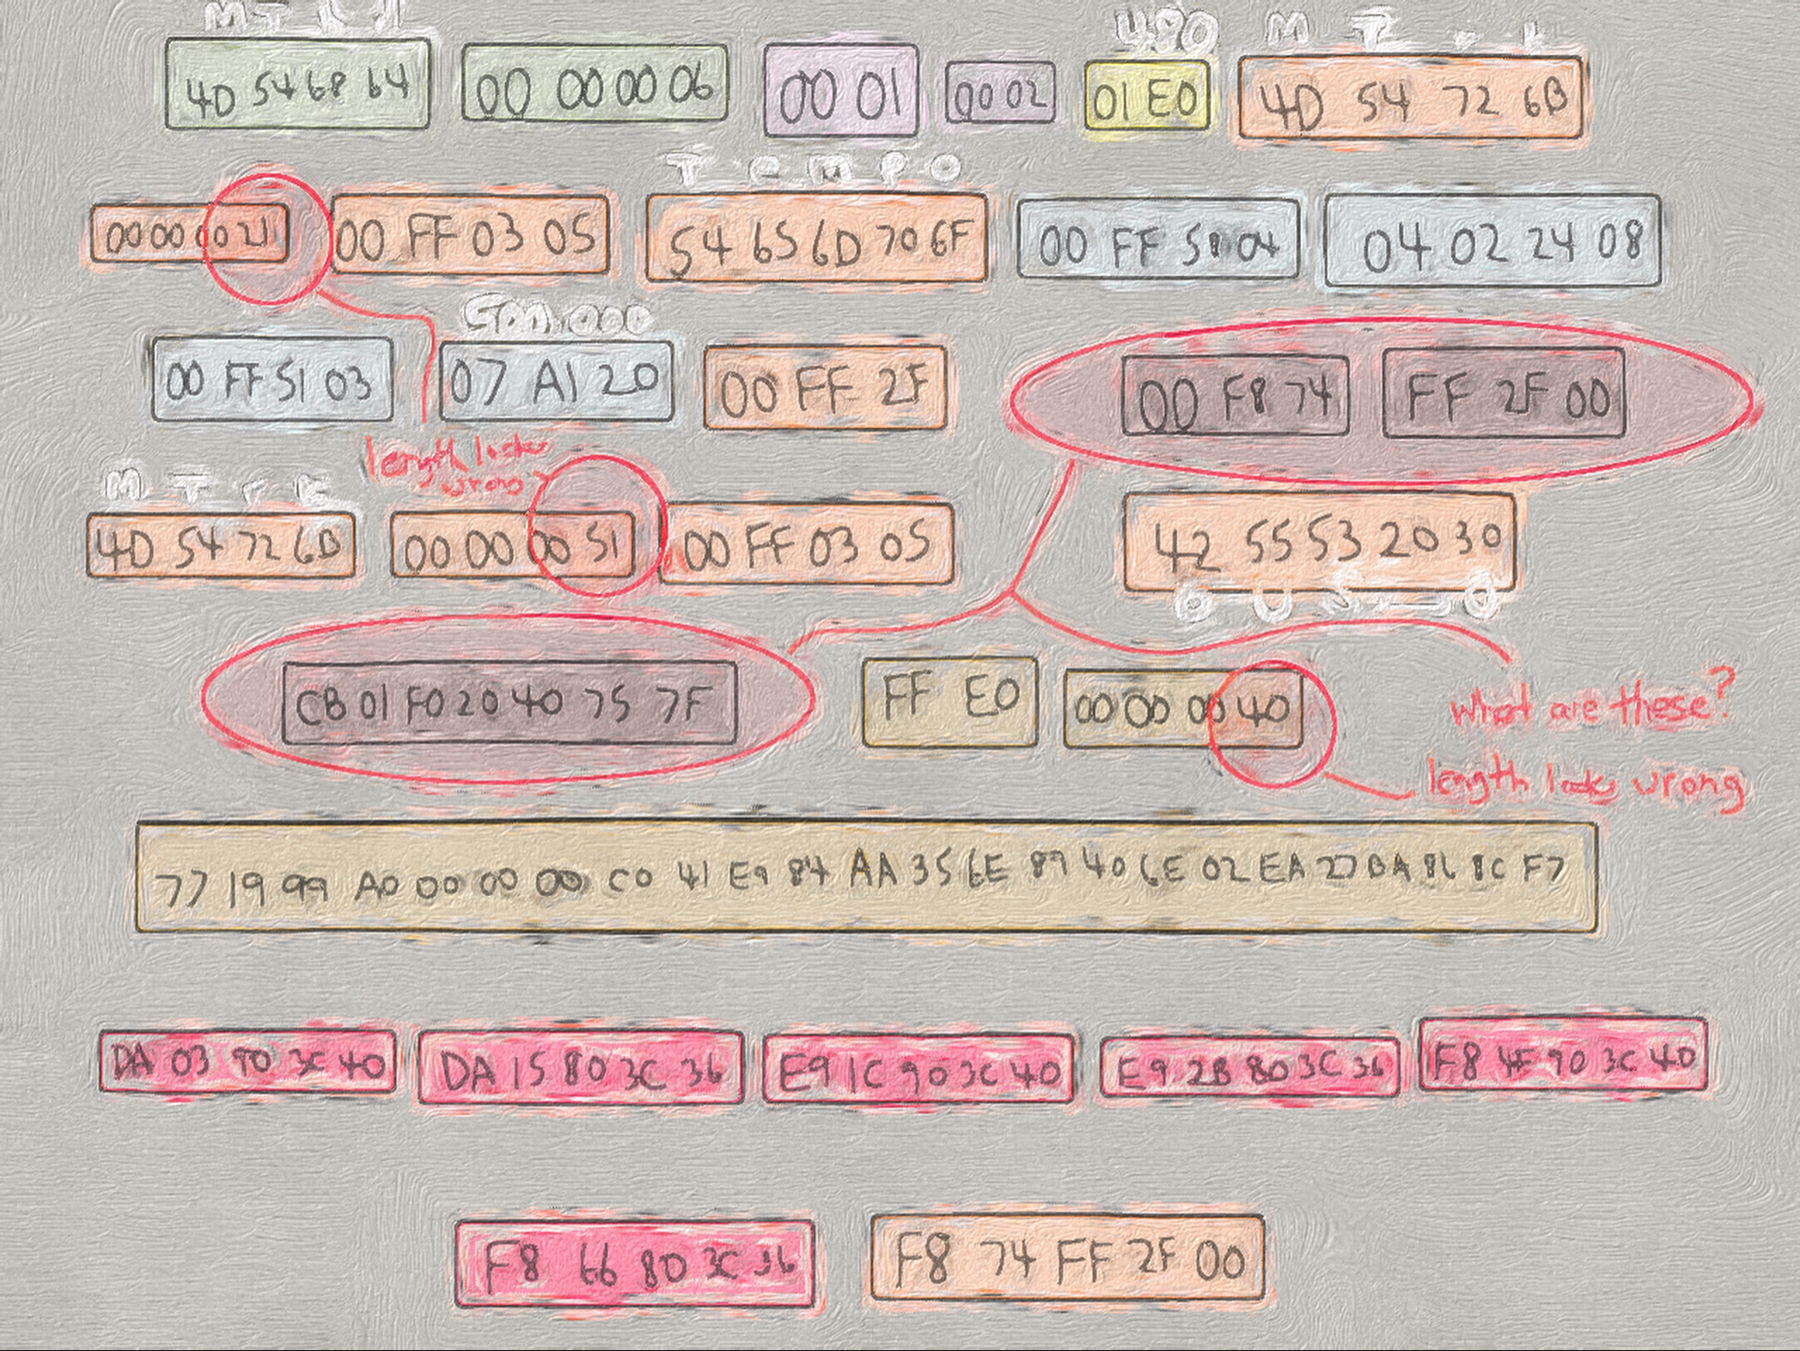 M T
4D 54 68 64 00 00 00 06 00 01 00 02 01 E0 4D 54 72 6B
480 M T r k
T E M P O
00 00 00 21 00 FF 03 05 54 65 6D 70 6F 00 FF 58 04 04 02 24 08
500,000
00 FF 51 03 07 A1 20 00 FF 2F 00 F8 74 FF 2F 00
length looks
wrong
M T r k
4D 54 72 6B 00 00 00 51 00 FF 03 05 42 55 53 20 30
B U S 0
CB 01 F0 20 40 75 7F FF E0 00 00 00 40
What are these?
length looks wrong
77 19 99 A0 00 00 00 C0 41 E9 84 AA 35 6E 89 40 6E 02 EA 27 BA 86 8C F7
DA 03 90 3C 40 DA 15 80 3C 36 E9 1C 90 3C 40 E9 2B 80 3C 36 F8 4F 90 3C 40
F8 66 80 3C 36 F8 74 FF 2F 00